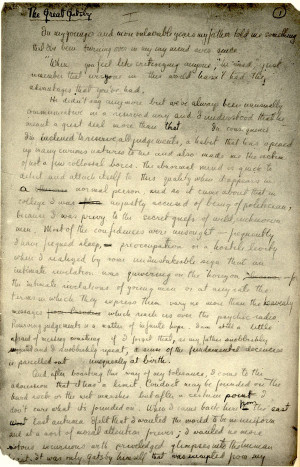 The Great Gatsby
1
I
In my younger and more vulnerable years my father told me something
that I've been turning over in my mind ever since
When you feel like criticizing anyone, he said, just
remember that everyone in this world hasn't had the
advantages that you've had.
He didn't say any more but we've always been unusually
communicative in a reserved way and I understood that he
meant a great deal more than that. In consequence
I'm inclined to reserve all judgements, a habit that has opened
up many curious natures to me and also made me the victim
of not a few collossal bores. The abnormal mind is quick to
detect and attach itself to this quality when it appears in
a normal person, and so it came about that in
college I was unjustly accused of being a politician,
because I was privy to the secret griefs of wild, unknown
men. Most of the confidences were unsought — frequently
I have feigned sleep, preoccupation or a hostile levity
when I realized by some unmistakable sign that an
intimate revelation was quivering on the horizon
the intimate revelations of young men or at any rate the
terms in which they express them vary no more than the heavenly
messages which reach us over the psychic radio
Reserving judgements is a matter of infinite hope. I am still a little
afraid of missing something if I forget that, as my father snobbishly
suggested and I snobbishly repeat, a sense of the fundamental decencies
is parcelled out unequally at birth.
And after boasting this way of my tolerance, I come to the
admission that it has a limit. Conduct may be founded on the
hard rock or the wet marshes but after a certain point I
don't care what it's founded on. When I came back from the east
last autumn I felt that I wanted the world to be in uniform
and at a sort of moral attention forever; I wanted no more
riotous excursions with privileged glimpses into the human
heart. It was only Gatsby himself that was exempted from my